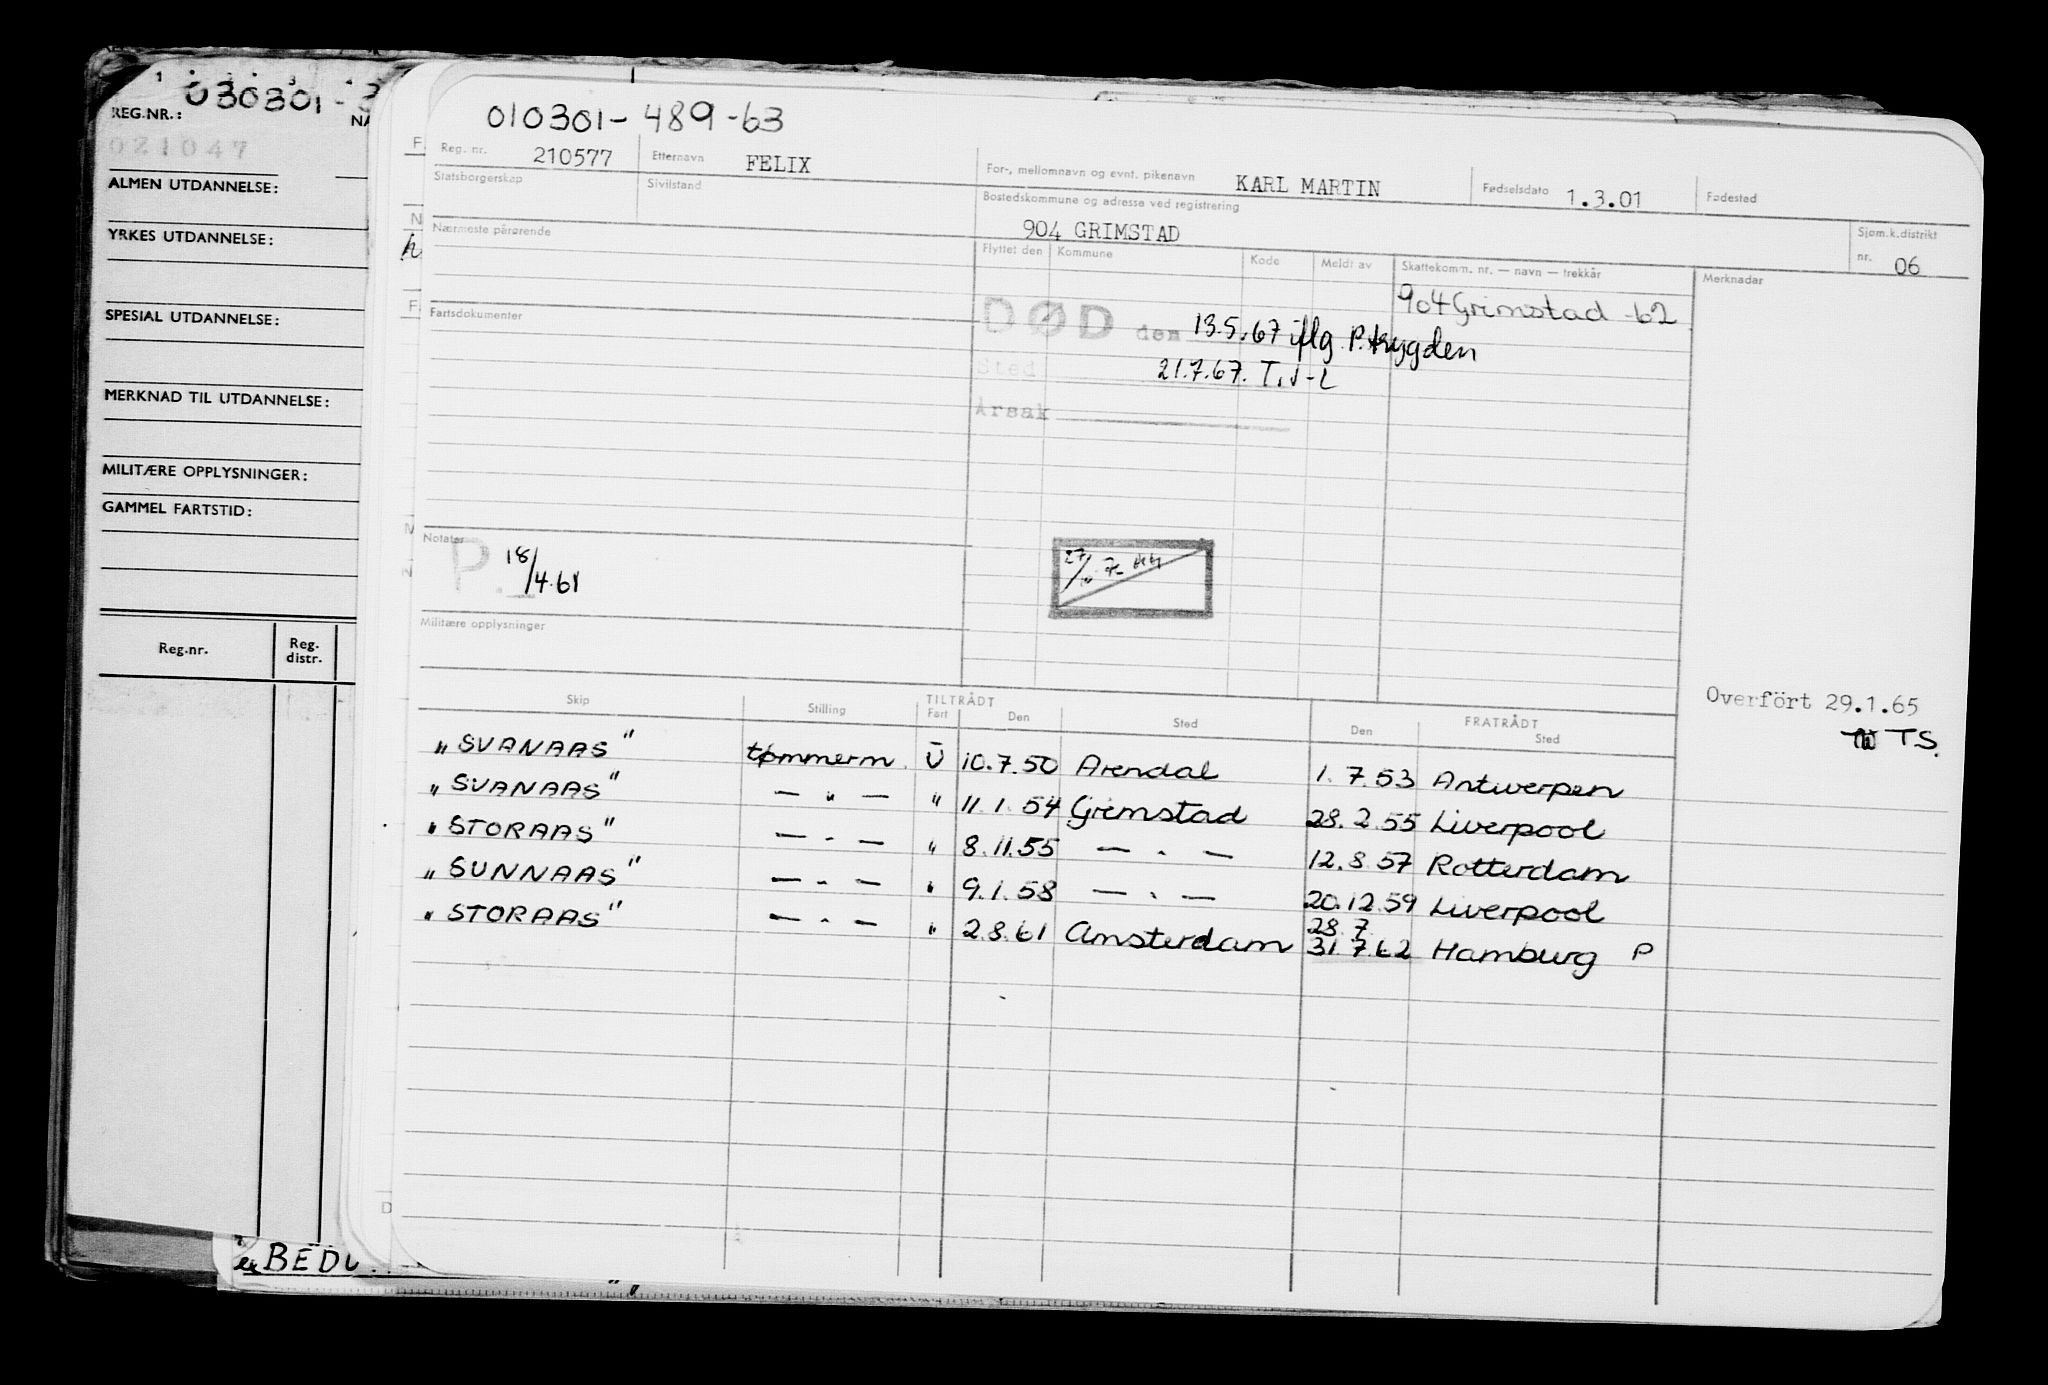 1 2 3 4
REG.NR.: 030301-3
021047
ALMEN UTDANNELSE:
YRKES UTDANNELSE:
SPESIAL UTDANNELSE:
MERKNAD TIL UTDANNELSE:
MILITÆRE OPPLYSNINGER:
GAMMEL FARTSTID:
Reg.nr. Reg. distr.
BEDU
010301-489-63
Reg. nr. 210577 Etternavn FELIX For-, mellomnavn og evnt. pikenavn KARL MARTIN Fødselsdato 1.3.01 Fødested
Statsborgerskap Sivilstand Bostedskommune og adresse ved registrering
904 GRIMSTAD Sjøm.k.distrikt nr. 06
Nærmeste pårørende Flyttet den Kommune Kode Meldt av Skattekomm. nr. — navn — trekkår Merknader
904 Grimstad -62
Fartsdokumenter
DØD den 13.5.67 iflg P.trygden
Sted 21.7.67. T.J-L
Årsak
Notater
P. 18/4.61
27/
Militære opplysninger
Overfört 29.1.65
TS.
Skip Stilling TILTRÅDT Fart Den Sted FRATRÅDT Den Sted
„SVANAAS" tømmerm. Ū 10.7.50 Arendal 1.7.53 Antwerpen
„SVANAAS" — „ — " 11.1.54 Grimstad 28.2.55 Liverpool
„STORAAS" — " — " 8.11.55 — " — 12.8.57 Rotterdam
„SUNNAAS" — " — " 9.1.58 — " — 20.12.59 Liverpool
28.7
„STORAAS" — " — " 2.8.61 Amsterdam 31.7.62 Hamburg P